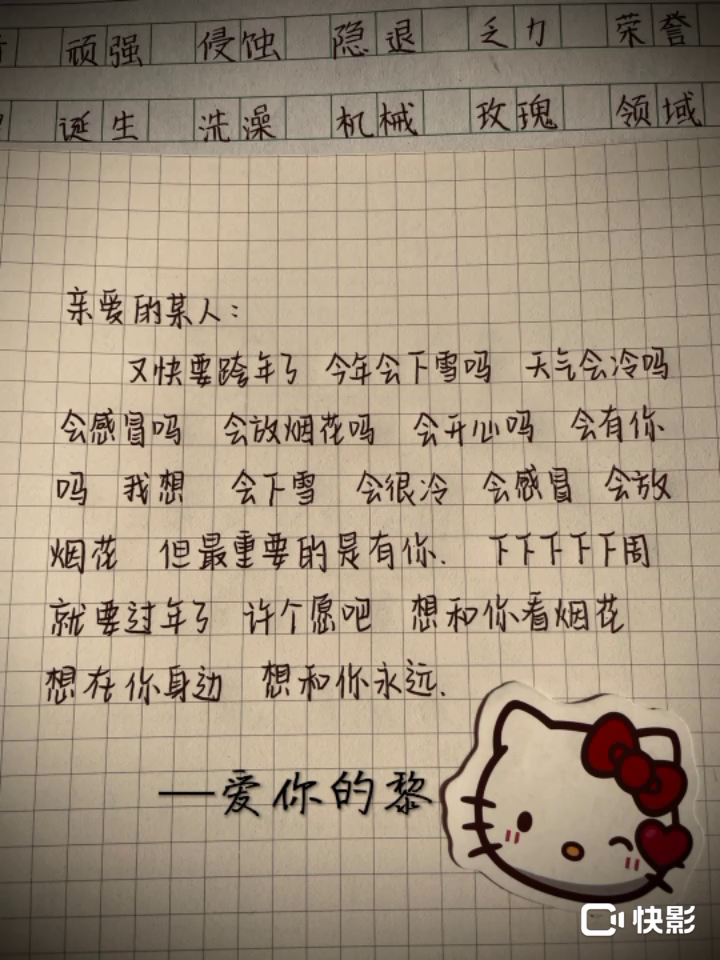 顽强 侵蚀 隐退 乏力 荣誉
诞生 洗澡 机械 玫瑰 领域
亲爱的某人：
又快要跨年了 今年会下雪吗 天气会冷吗
会感冒吗 会放烟花吗 会开心吗 会有你
吗 我想 会下雪 会很冷 会感冒 会放
烟花 但最重要的是有你. 下下下下下周
就要过年了 许个愿吧 想和你看烟花
想在你身边 想和你永远.
—爱你的黎
快影